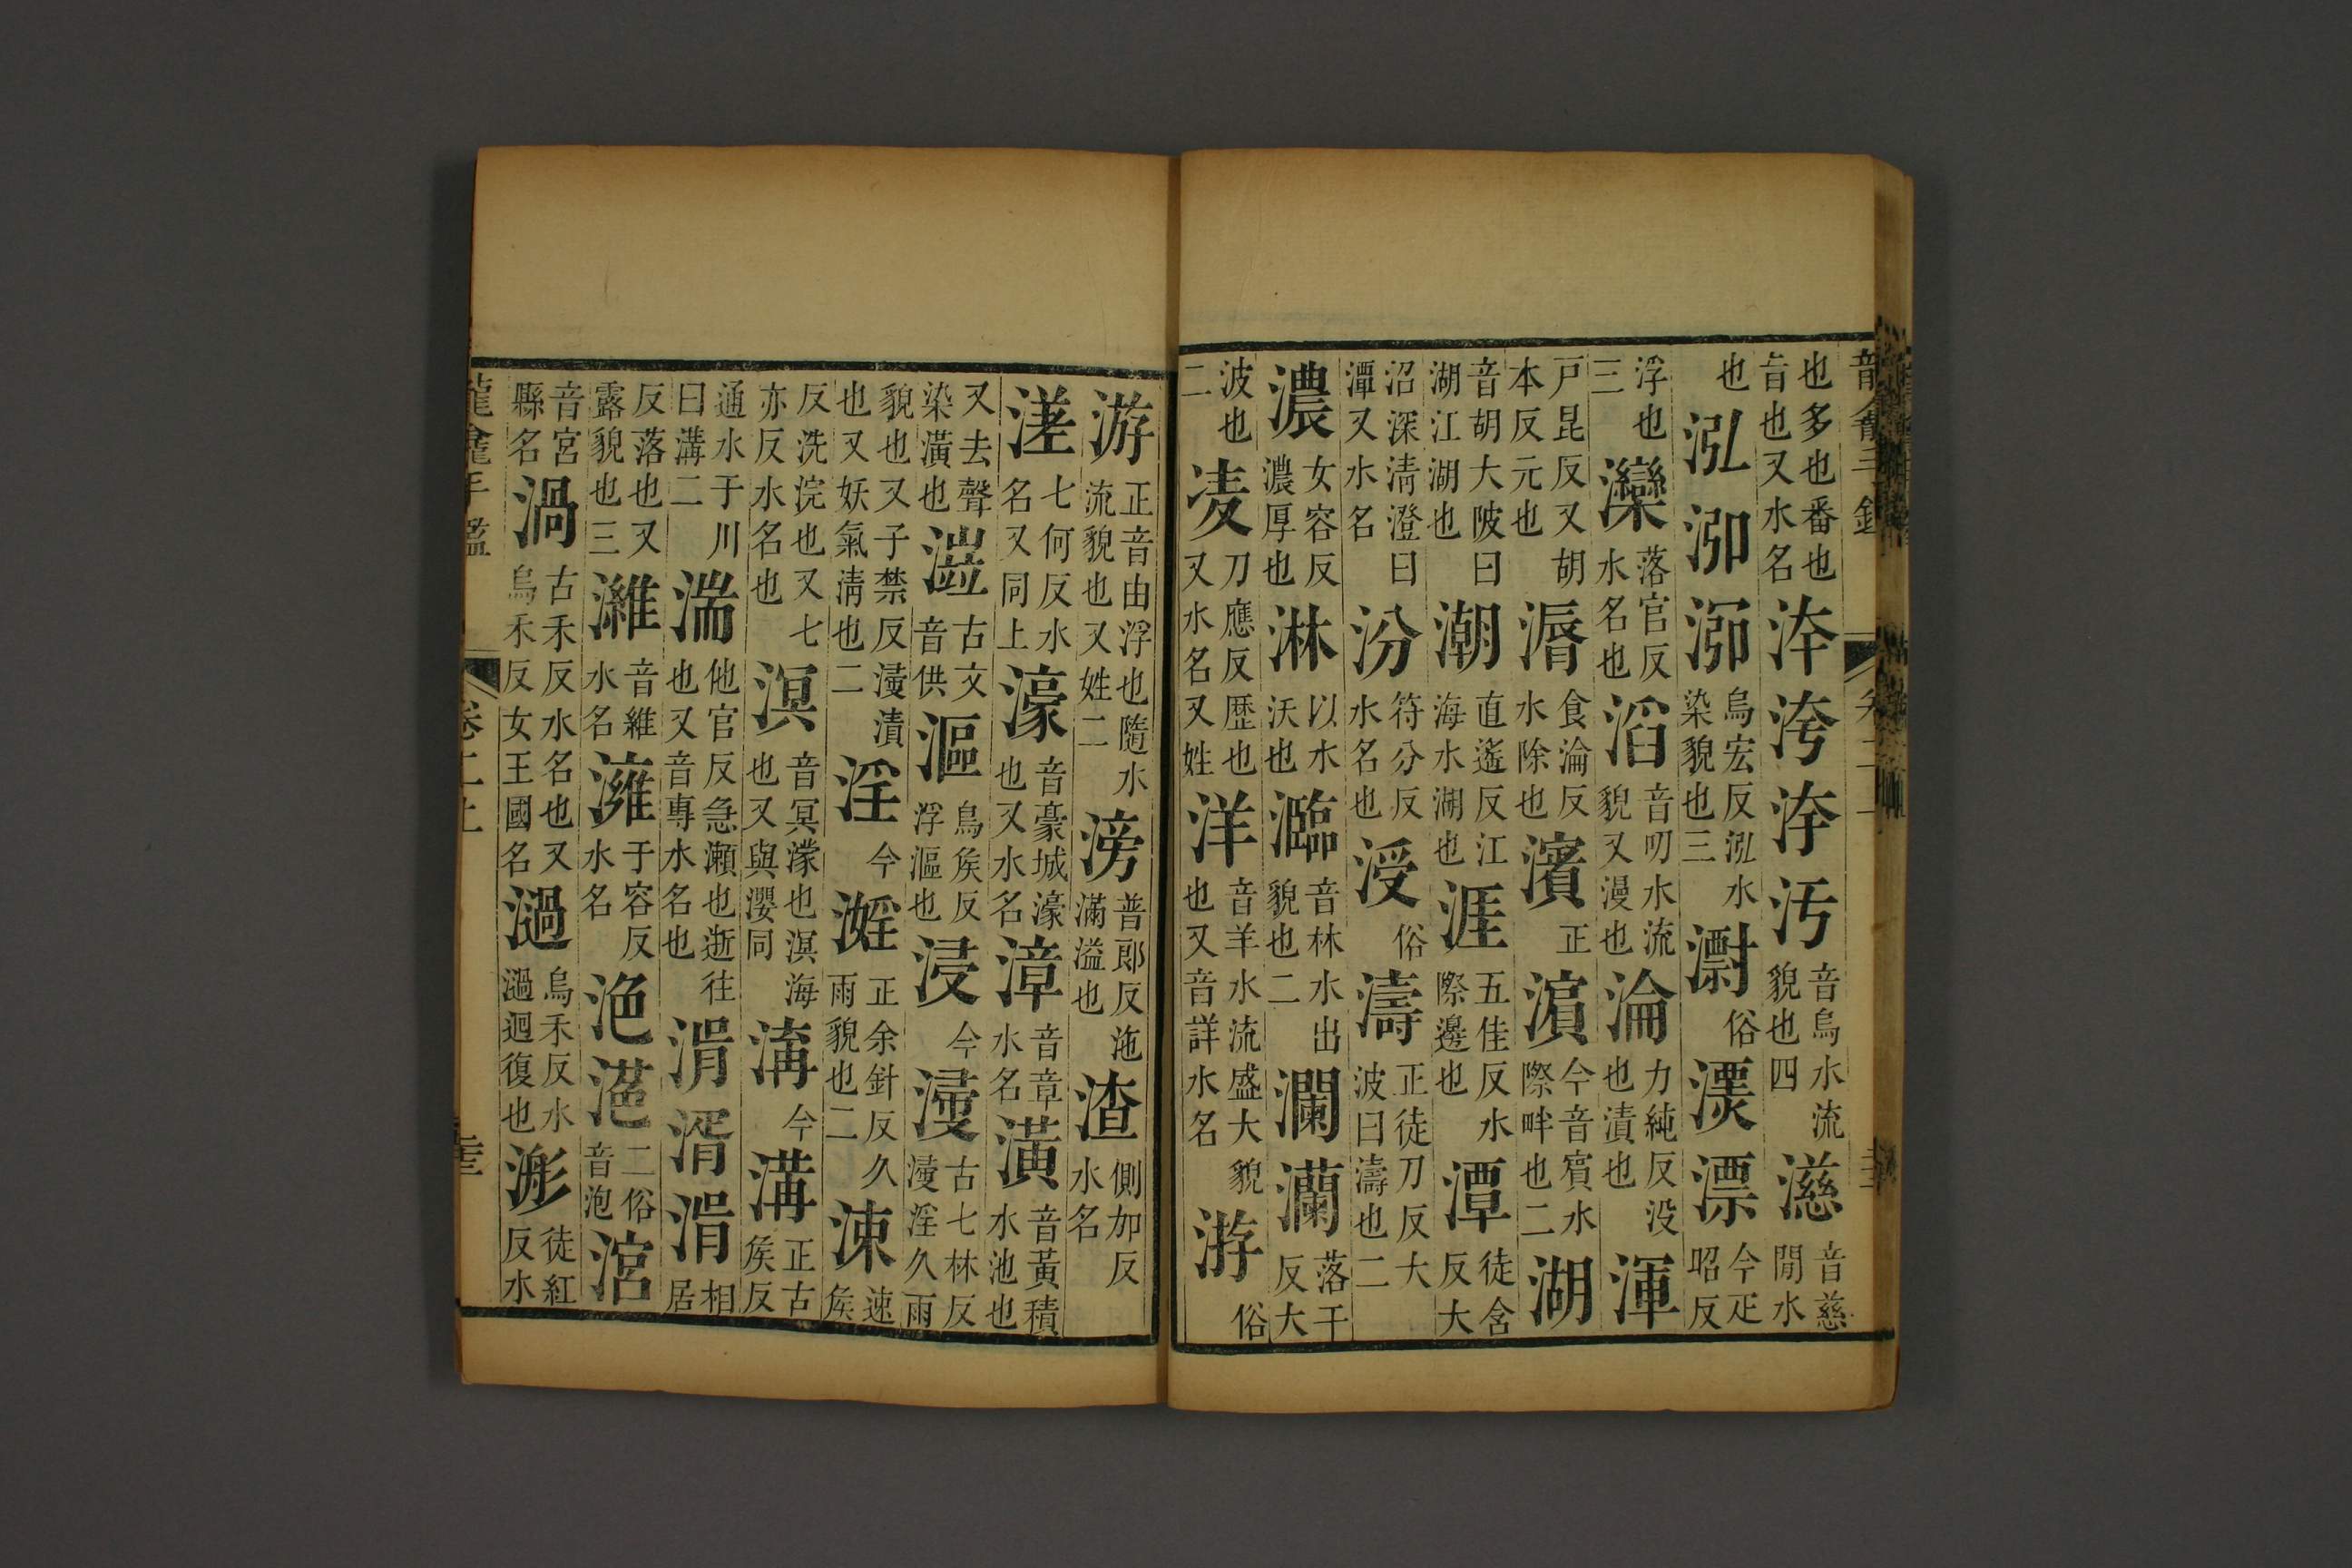 也多也番也㫖也又水名泍洿洿汚音烏水流貌也四濨音慈閒水
也泓泖泖烏宏反泓水染貌也三㵟俗漂漂今疋昭反
浮也三灤落官反水名也滔音叨水流貌又漫也淪力純反没也漬也渾
戸昆反又胡本反元也漘食淪反水除也濱正濵今音賔水際畔也二湖
音胡大陂曰湖江湖也潮直遙反江海水潮也涯五佳反水際邊也潭徒含反大
沼深淸澄曰潭又水名汾符分反水名也涭俗濤正徒刀反大波曰濤也二
濃女容反濃厚也淋以水沃也㵉音林水出貌也二瀾灡落干反大
波也二淩力應反歷也又水名又姓洋音羊水流盛大貌也又音詳水名游俗
游正音由浮也隨水流貌也又姓二滂普郎反沲滿溢也渣側加反水名
溠七何反水名又同上濠音豪城濠也又水名漳音章水名潢音黃積水池也
又去聲染潢也澁古文音供漚烏矦反浮漚也浸今㵫古七林反漫淫久雨
貌也又子禁反妖氣淸也二漫漬淫今㜮正余針反久雨貌也二涑速矦
反洗浣也又七亦反水名也溟音冥濛也溟海也又與瀴同溝今溝正古矦反
通水于川曰溝二湍他官反急瀨也逝往也又音專水名也湑湑湑相居
反落也又露貌也三濰音維水名澭于容反水名浥滟二俗音泡涫
音宮縣名渦古禾反水名也又烏禾反女王國名濄烏禾反水濄迴復也浵徒紅反水
龍龕手鑑
卷二上